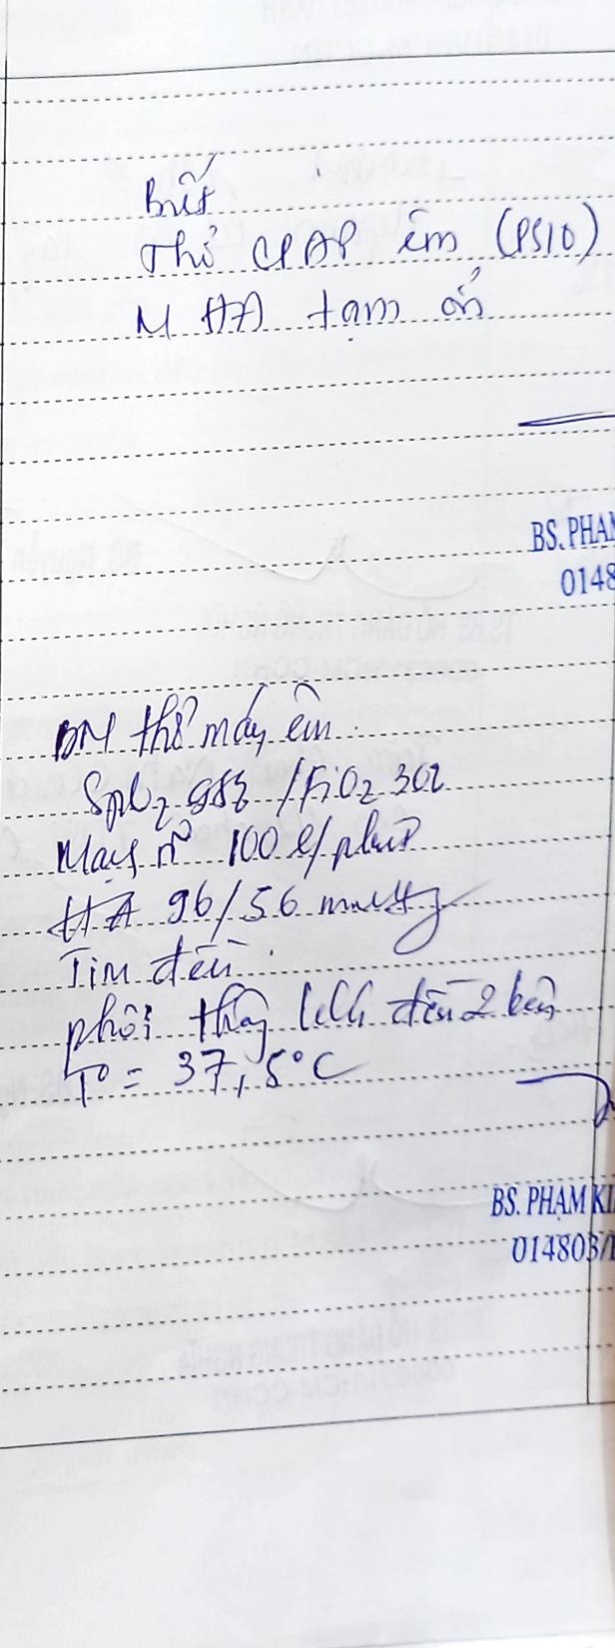 Biết
Thở CPAP êm (PS10)
M HA tạm ổn
BS. PHẠM
0148
BN thở máy êm.
SpO2 98% /FiO2 30%
Mạch 100 l/phút
HA 96/56 mmHg
Tim đều.
phổi thông đều 2 bên
T° = 37,5°C
BS. PHẠM KI
014803/